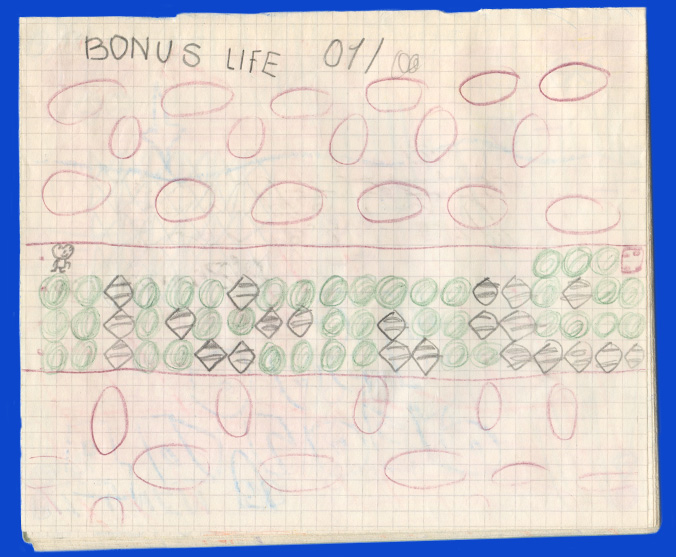 BONUS LIFE 01/